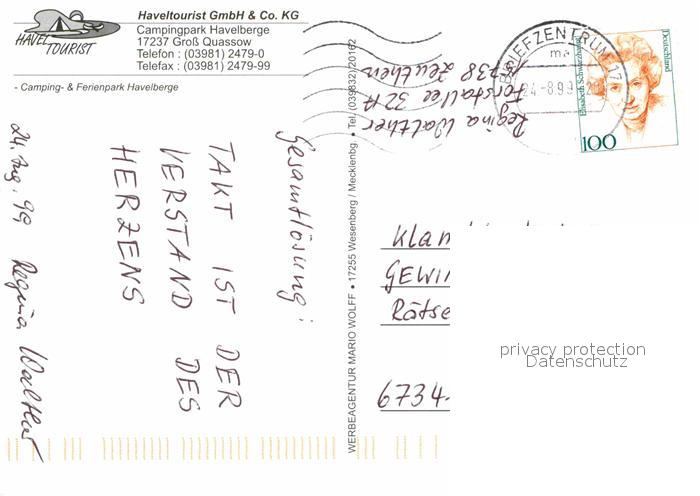 HAVEL
TOURIST
Haveltourist GmbH & Co. KG
Campingpark Havelberge
17237 Groß Quassow
Telefon : (03981) 2479-0
Telefax : (03981) 2479-99
- Camping- & Ferienpark Havelberge
24. Aug. 99 Regina Walther
Gesamtlösung:
TAKT IST DER
VERSTAND DES
HERZENS
WERBEAGENTUR MARIO WOLFF • 17255 Wesenberg / Mecklenbg. • Tel. (039832) 20162
Regina Walther
Forstallee 32A
15738 Zeuthen
BRIEFZENTRUM 17
ma
24-8.99
Elisabeth Schwarzhaupt
Deutschland
100
Klam
GEWIN
Rätse
6734
privacy protection
Datenschutz